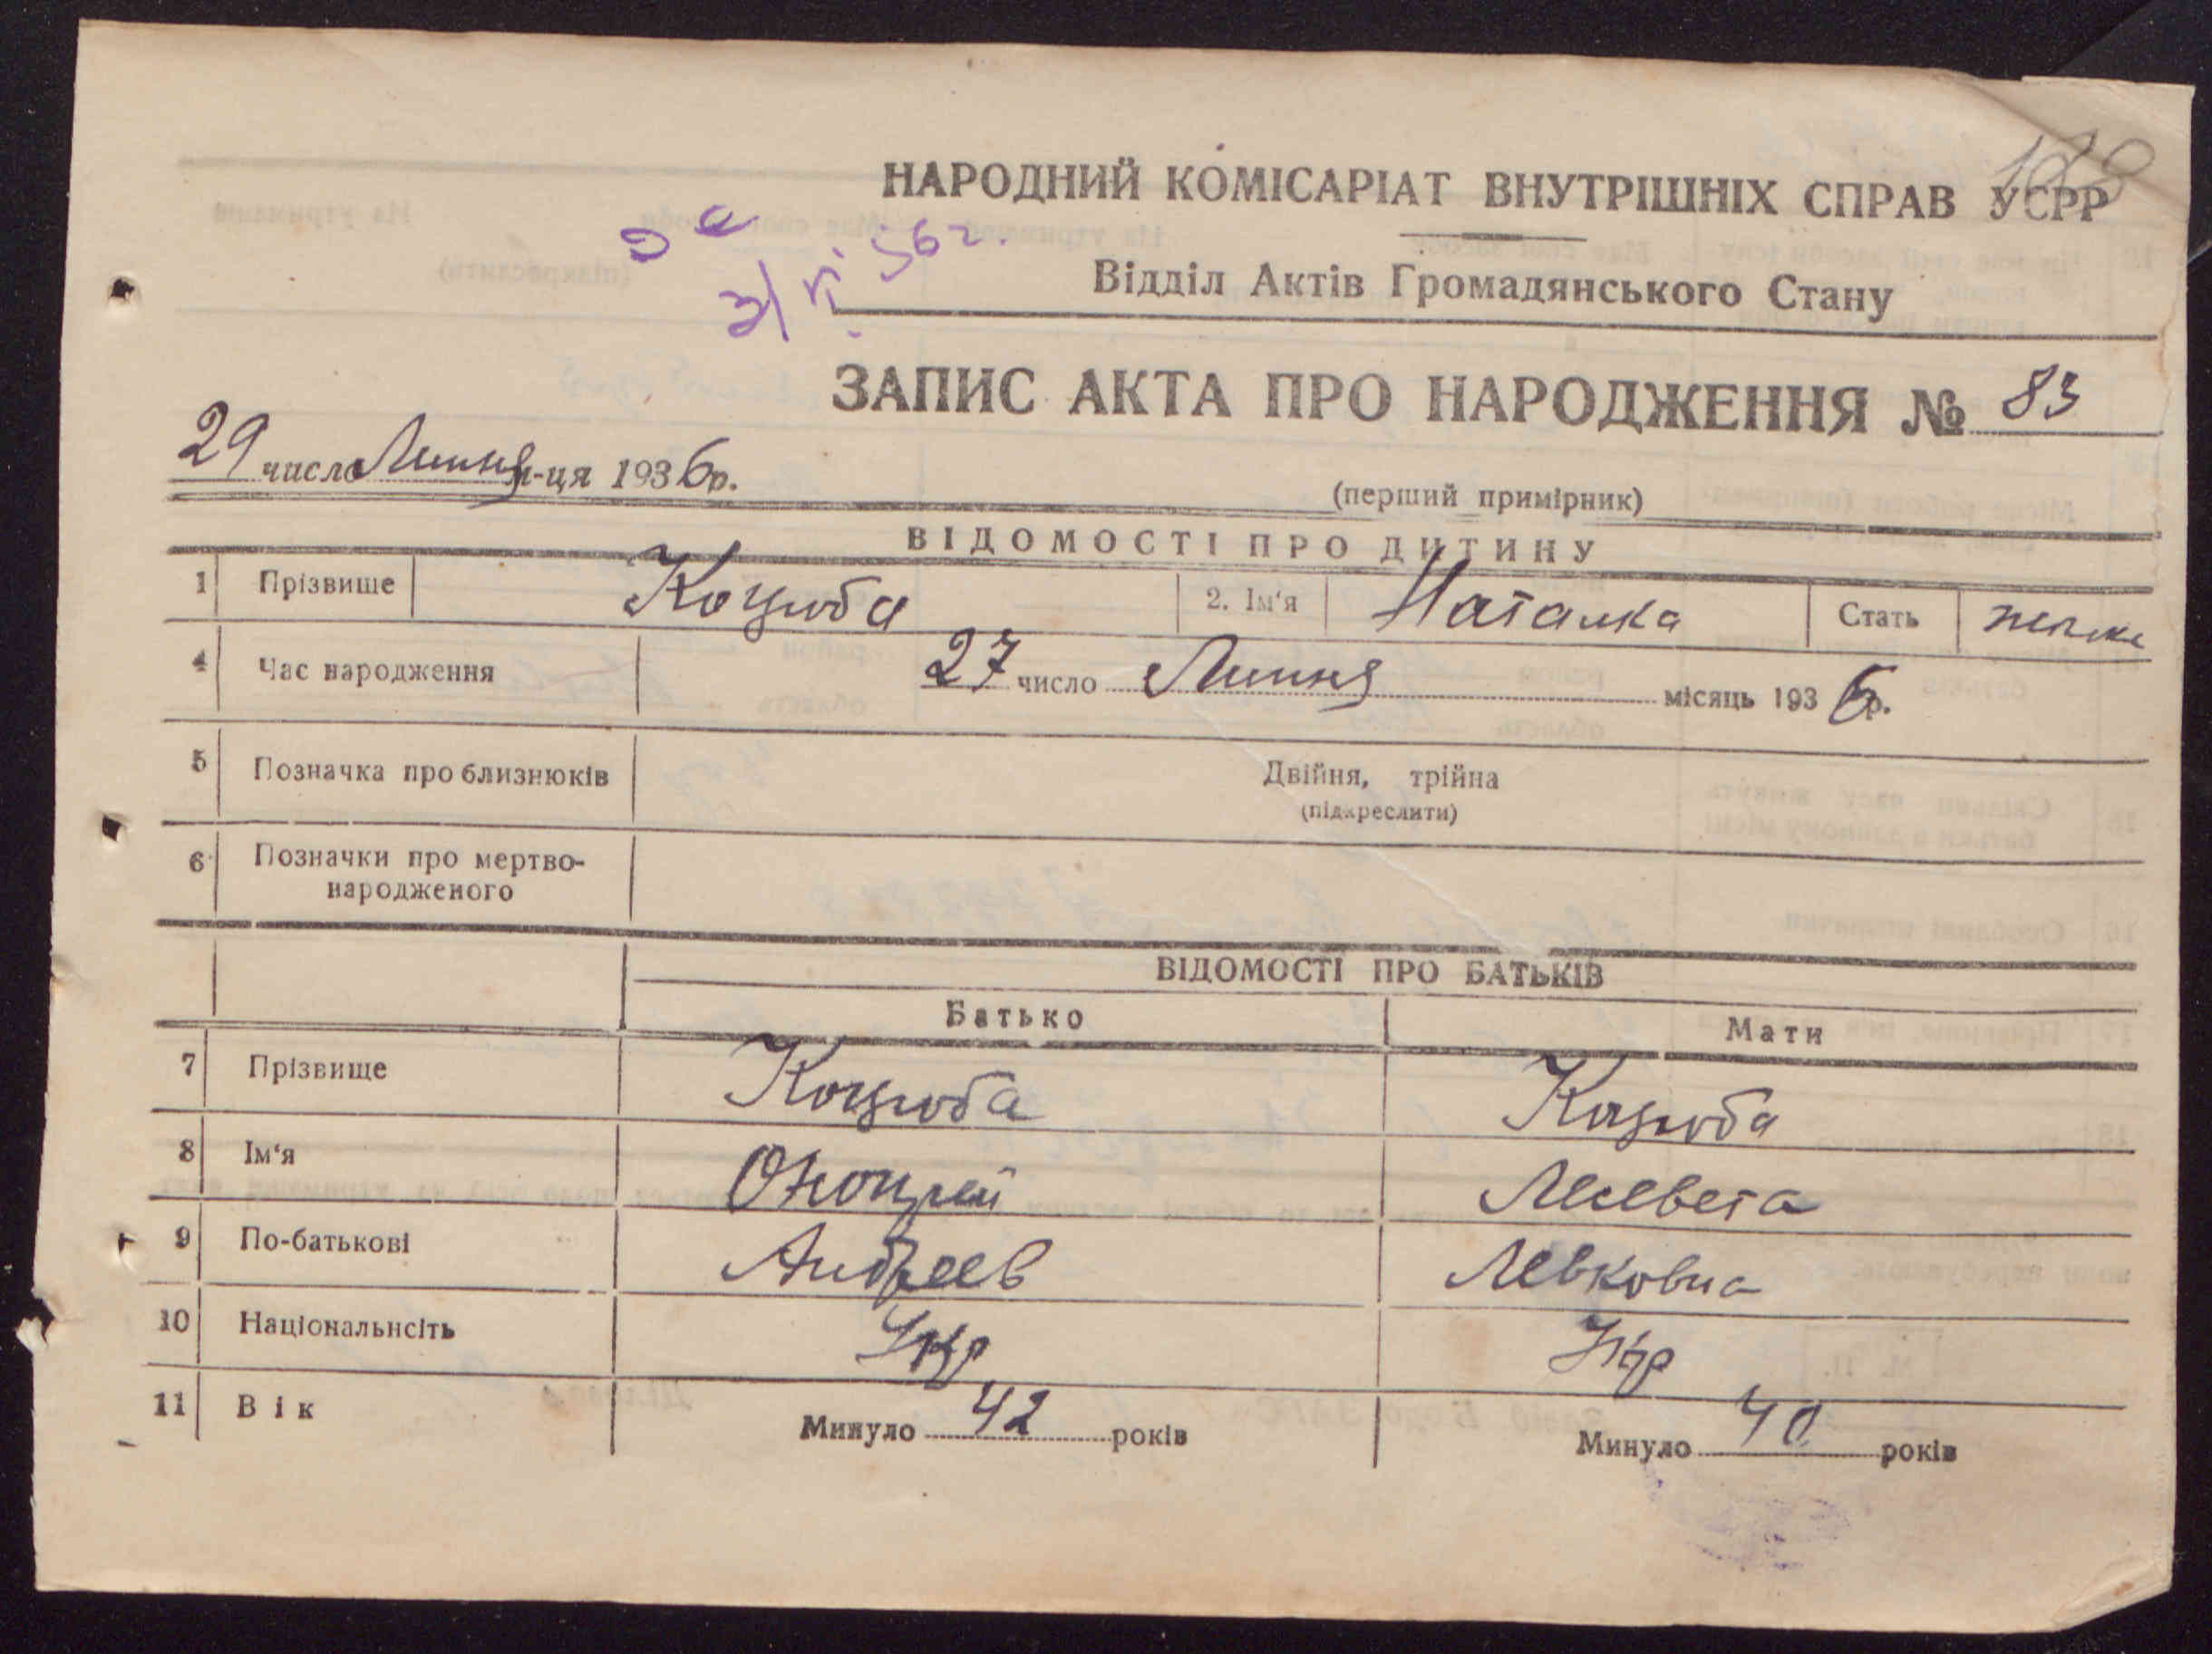 НАРОДНИЙ КОМІСАРІАТ ВНУТРІШНІХ СПРАВ УСРР
Відділ Актів Громадянського Стану
3/VI 56 г.
ЗАПИС АКТА ПРО НАРОДЖЕННЯ № 83
29 число Липня м-ця 1936 р.
(перший примірник)
ВІДОМОСТІ ПРО ДИТИНУ
1 Прізвище Коцюба 2. Ім'я Наталка Стать
4 Час народження 27 число Липня місяць 1936 р.
5 Позначка про близнюків Двійня, трійна
(підкреслити)
6 Позначки про мертво-
народженого
ВІДОМОСТІ ПРО БАТЬКІВ
Батько Мати
7 Прізвище Коцюба Коцюба
8 Ім'я Лисевета
9 По-батькові Андреев Левковна
10 Національнсіть Укр Укр
11 Вік Минуло 42 років Минуло 40 років